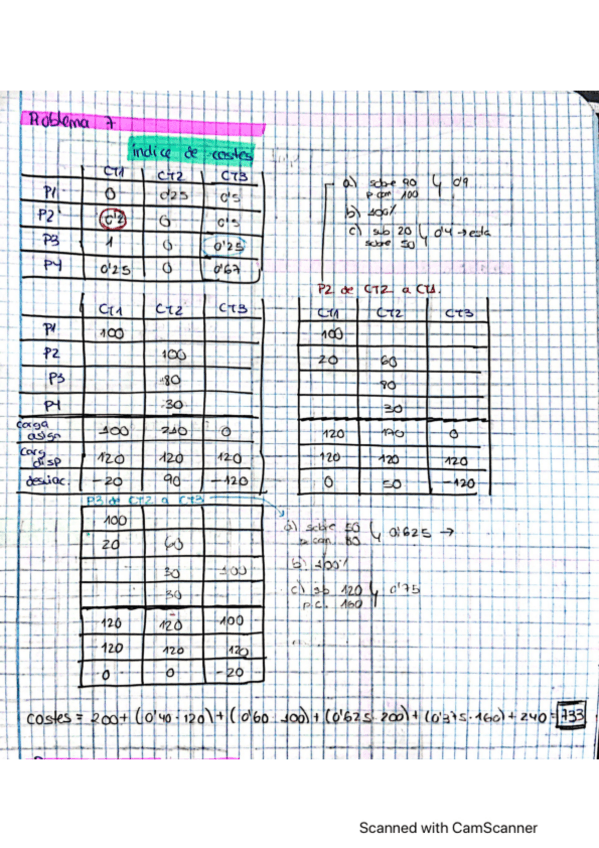 Problema 7
índice de costes
CT1 CT2 CT3
P1 0 0'25 0'5
P2 0'2 0 0'5
P3 1 0 0'25
P4 0'25 0 0'67
a) sobre 90 0'9
p can 100
b) 100%
c) sub 20 0'4 → esta
sobre 50
P2 de CT2 a CT1.
CT1 CT2 CT3
P1 100
P2 100
P3 80
P4 30
carga asign 100 210 0
carg disp 120 120 120
desviac. -20 90 -120
CT1 CT2 CT3
100
20 60
80
30
120 170 0
120 120 120
0 50 -120
P3 de CT2 a CT3
100
20 60
30 100
30
120 120 100
120 120 120
0 0 -20
a) sobre 50 0'625 →
p. can. 80
b) 100%
c) sub 120 0'75
p.c. 160
costes = 200 + (0'40 · 120) + (0'60 · 100) + (0'625 · 200) + (0'375 · 160) + 240 = 733
Scanned with CamScanner